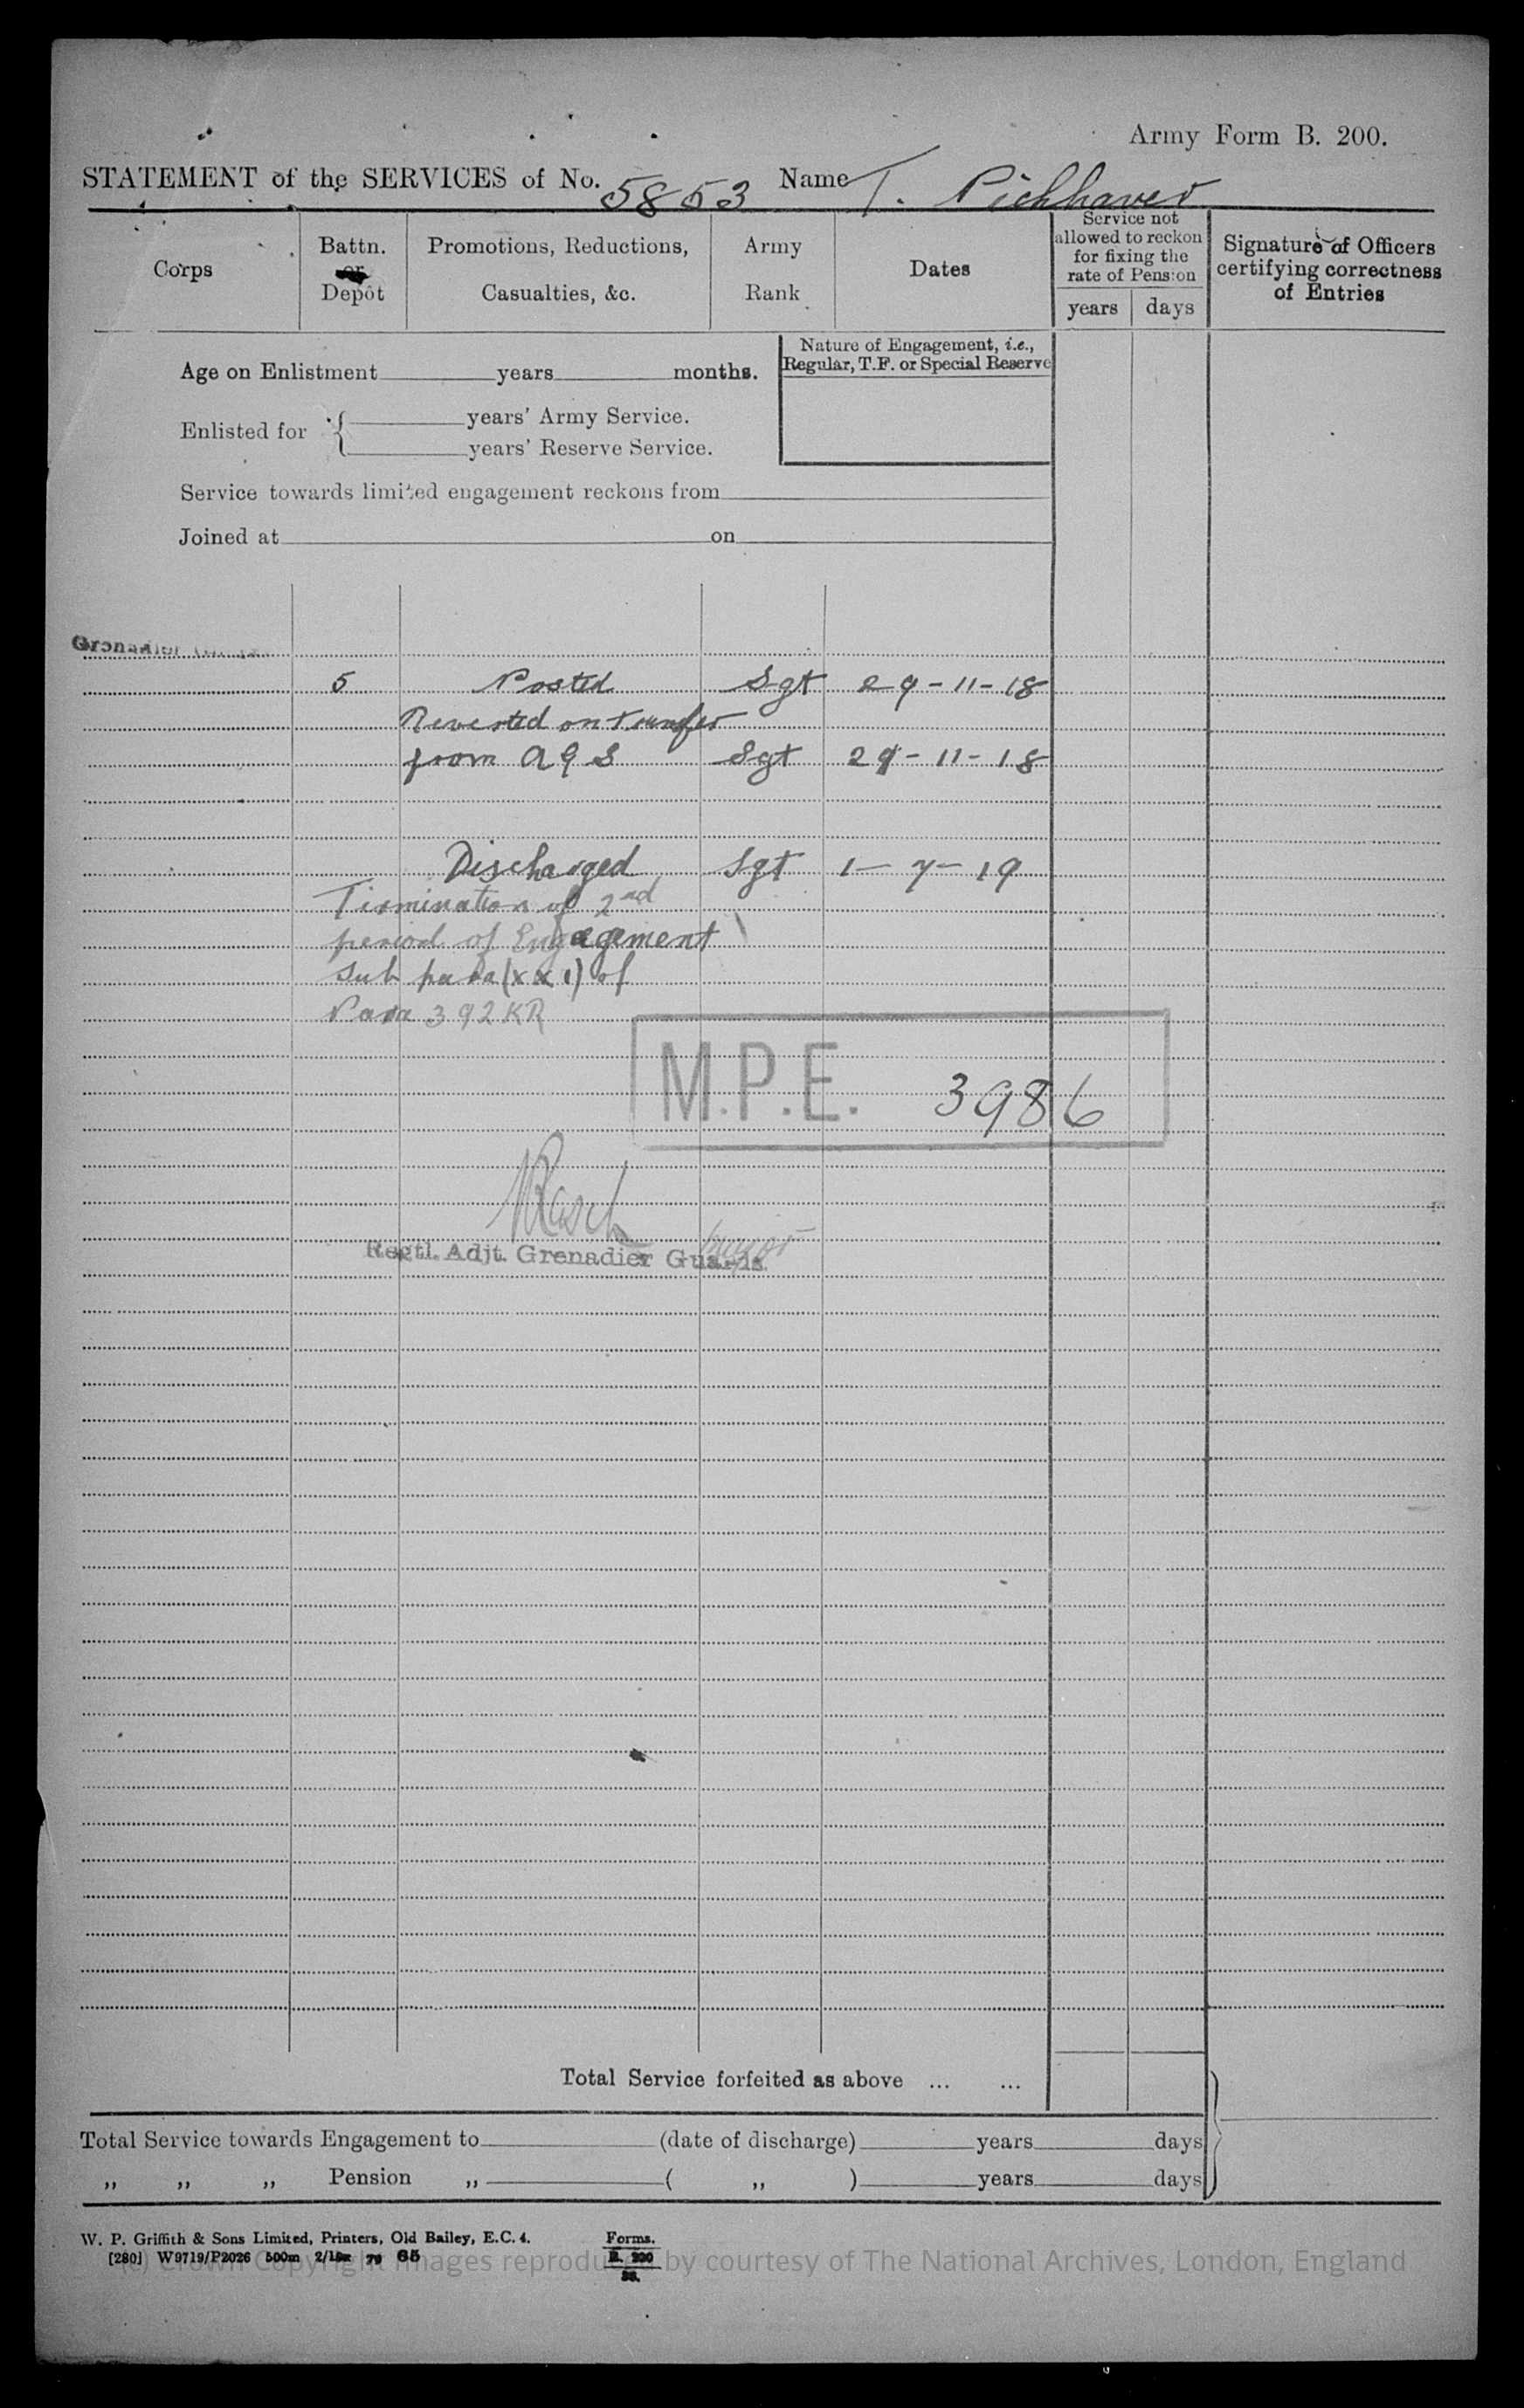 Army Form B. 200.
STATEMENT of the SERVICES of No. 5853 Name T. Pickhaver
Corps
Battn. or Depôt
Promotions, Reductions, Casualties, &c.
Army Rank
Dates
Service not allowed to reckon for fixing the rate of Pension
years days
Signature of Officers certifying correctness of Entries
Age on Enlistment years months.
Nature of Engagement, i.e., Regular, T.F. or Special Reserve
Enlisted for { years' Army Service.
years' Reserve Service.
Service towards limited engagement reckons from
Joined at on
Grenadier
5 Posted Sgt 29-11-18
Reverted on transfer
from A G S Sgt 29-11-18
Discharged Sgt 1-7-19
Termination of 2nd
period of Engagement
sub para (xxi) of
Para 392 KR
M.P.E. 3986
Major
Regtl. Adjt. Grenadier Guards.
Total Service forfeited as above ... ...
Total Service towards Engagement to (date of discharge) years days
„ „ „ Pension „ ( „ ) years days
W. P. Griffith & Sons Limited, Printers, Old Bailey, E.C. 4.
[280] W9719/P2026 500m 2/18 79 65
Forms.
B. 200
(c) Crown Copyright Images reproduced by courtesy of The National Archives, London, England